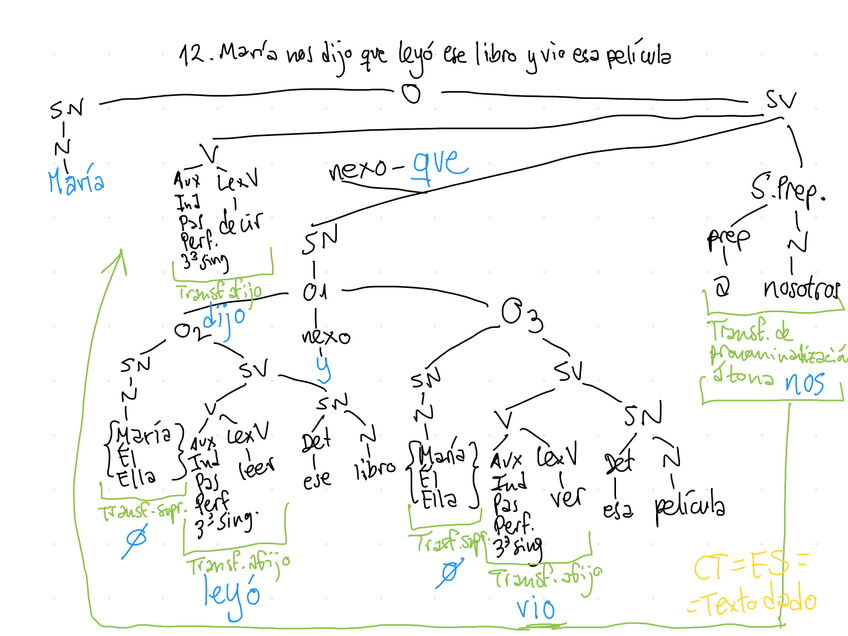 12. María nos dijo que leyó ese libro y vio esa película
SN
O
SV
N
María
V
nexo - que
S.Prep.
Aux LexV
Ind
Pas decir
Perf.
3ª sing
Transf. afijo
dijo
SN
prep N
a nosotros
Transf. de
pronominalización
átona nos
O1
O2
nexo
y
O3
SN
SV
N
María
Él
Ella
Transf. supr.
Ø
V
SN
Aux LexV
Ind leer
Pas
Perf
3ª sing.
Transf. afijo
leyó
Det N
ese libro
SN
SV
N
María
Él
Ella
Trasf. supr.
Ø
V
SN
Aux LexV
Ind ver
Pas
Perf.
3ª sing
Transf. afijo
vio
Det N
esa película
CT = ES =
= Texto dado